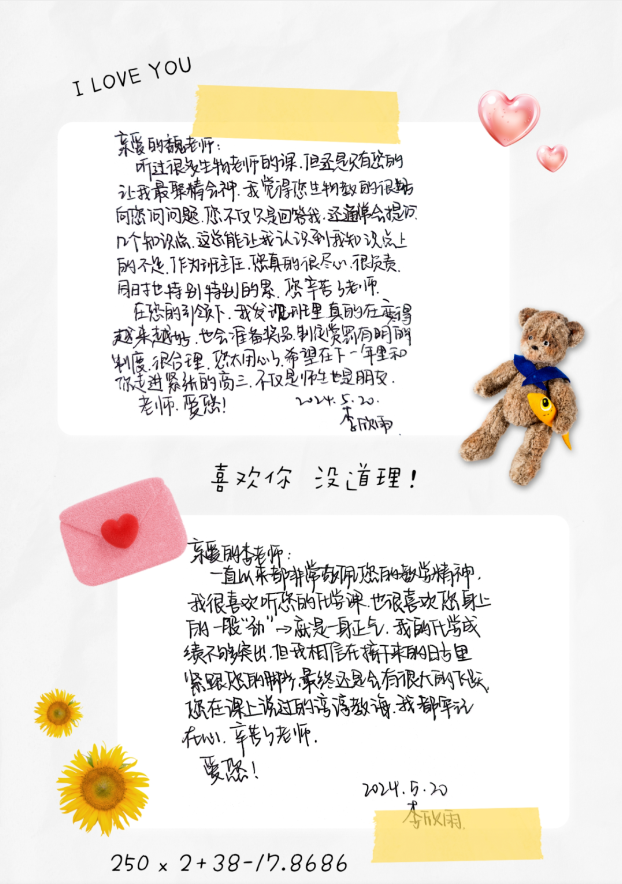 I LOVE YOU
亲爱的魏老师:
听过很多生物老师的课,但还是只有您的
让我最聚精会神,我觉得您生物教的很好
向您问问题,您不仅只是回答我,还通常会提问
几个知识点,这总能让我认识到我知识点上
的不足,作为班主任,您真的很尽心,很负责,
同时也特别特别的累,您辛苦了老师.
在您的引领下,我发现班里真的在变得
越来越好,也会准备奖品,制定赏罚有明的
制度,很合理,您太用心了,希望在下一年里和
你走进紧张的高三,不仅是师生也是朋友.
老师,爱您!
2024.5.20.
李欣雨
喜欢你 没道理!
亲爱的李老师:
一直以来都非常敬佩您的教学精神,
我很喜欢听您的化学课,也很喜欢您身上
的一股“劲”→就是一身正气,我的化学成
绩不够突出,但我相信在接下来的日子里
紧跟您的脚步,最终还是会有很大的飞跃
您在课上说过的谆谆教诲,我都牢记
在心,辛苦了老师.
爱您!
2024.5.20
李欣雨
250 x 2+38-17.8686